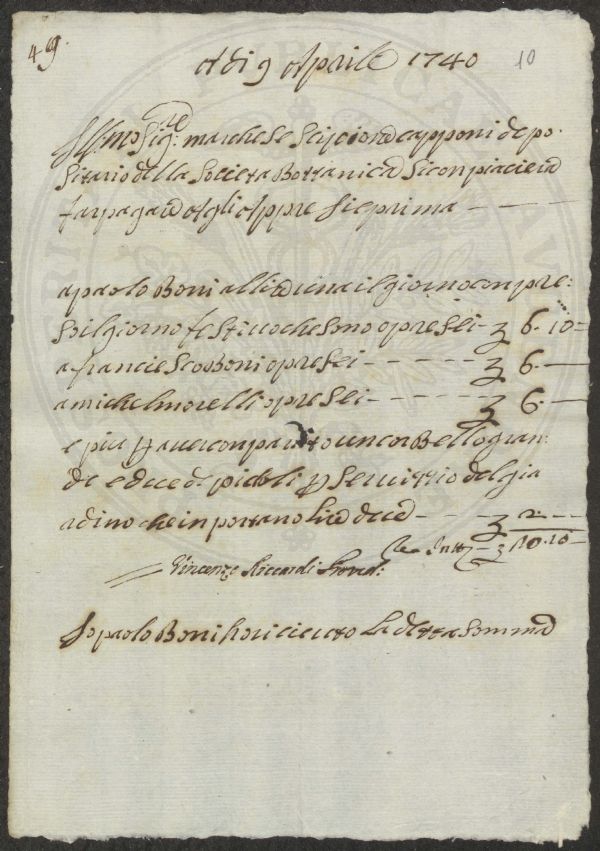 49.
Adi 9 Aprile 1740
10
Ill.mo Sig.re marchese Scipione capponi depo-
sitario della Societa Bottanica Si conpiacierà
far pagare Agli Appre Sie prima
a paolo Boni a lire una il giorno con pre:
So il giorno festivo che sono opre Sei - 6. 10
a franciesco Boni opre sei 6.
a michel morelli opre Sei 6.
e piu p aver conpraito un corbello gran-
de e duce di picholi p Servittio del gia
adino che in portano lire dece 2.
Vincenzo Riccardi Proved.
Io paolo Boni ho riceuto La detta Somma